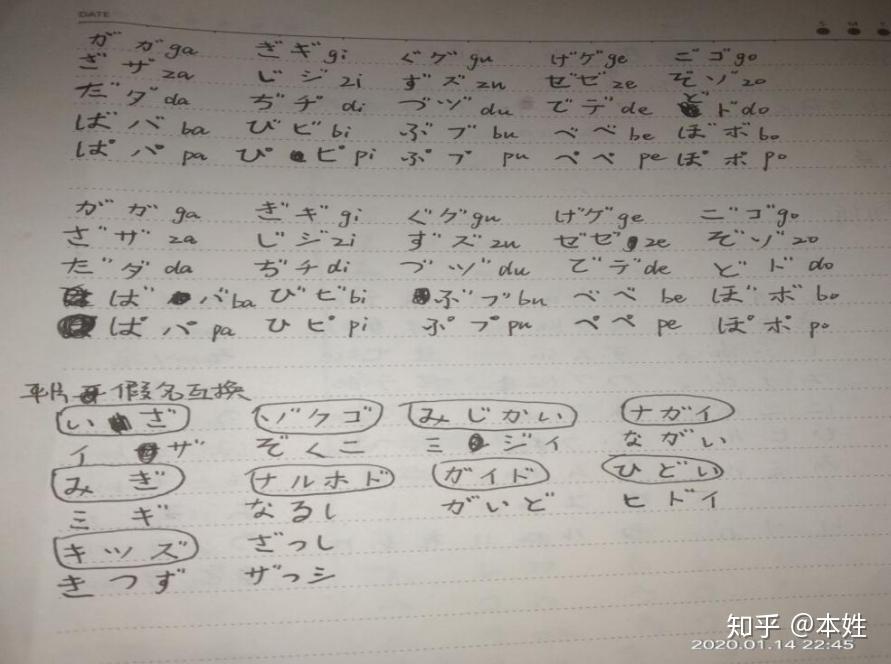 DATE
S M T
が ガ ga ぎ ギ gi ぐ グ gu げ ゲ ge ご ゴ go
ざ ザ za じ ジ zi ず ズ zu ぜ ゼ ze ぞ ゾ zo
だ ダ da ぢ ヂ di づ ヅ du で デ de ど ド do
ば バ ba び ビ bi ぶ ブ bu べ ベ be ぼ ボ bo
ぱ パ pa ぴ ピ pi ぷ プ pu ぺ ペ pe ぽ ポ po
が ガ ga ぎ ギ gi ぐ グ gu げ ゲ ge ご ゴ go
ざ ザ za じ ジ zi ず ズ zu ぜ ゼ ze ぞ ゾ zo
だ ダ da ぢ チ di づ ヅ du で デ de ど ド do
ば バ ba び ビ bi ぶ ブ bu べ ベ be ぼ ボ bo
ぱ パ pa ひ ピ pi ぷ プ pu ぺ ペ pe ぽ ポ po
平片假名互换
い ざ ゾクゴ みじかい ナガイ
イ ザ ぞくこ ミ ジイ ながい
みぎ ナルホド ガイド ひどい
ミギ なるし がいど ヒドイ
キツズ ざっし
きつず ザっシ
知乎 @本姓
2020.01.14 22:45